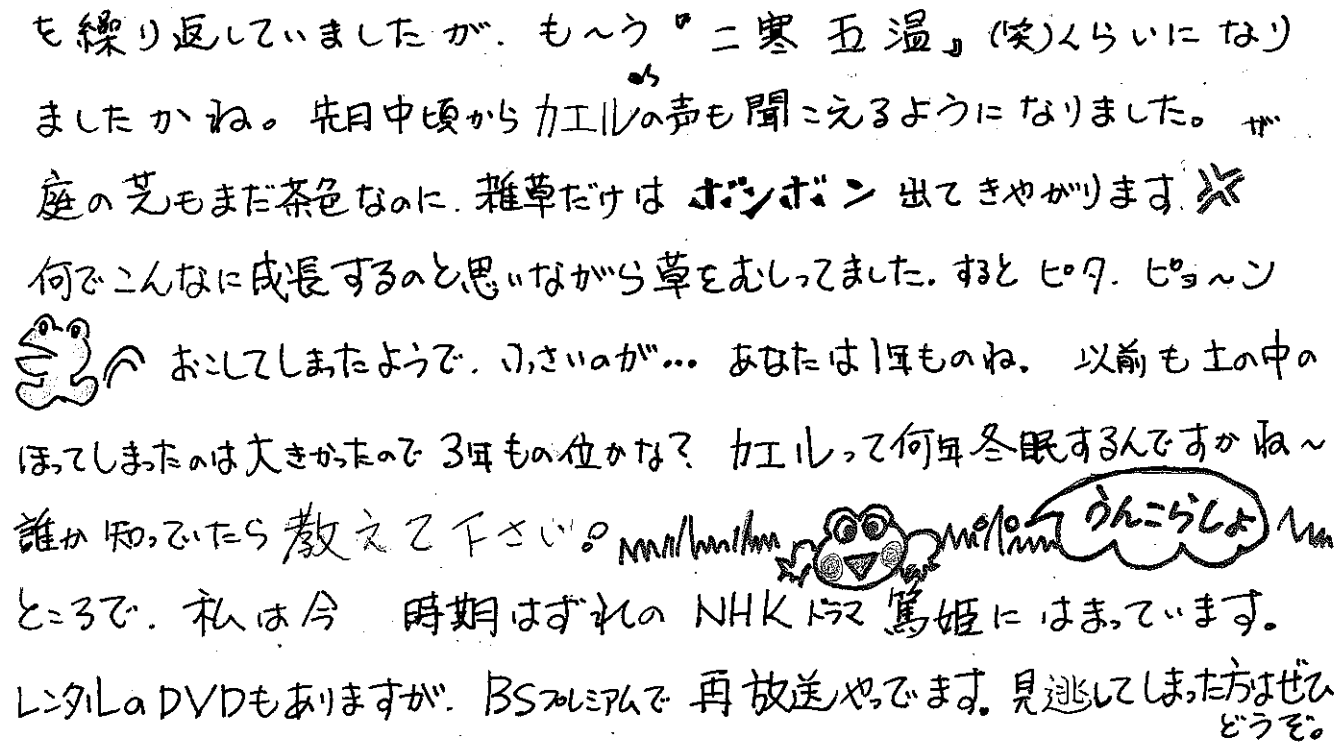 を繰り返していましたが、も〜う『二寒五温』(笑)くらいになり
ましたかね。先日中頃からカエルの声も聞こえるようになりました。
庭の芝もまだ茶色なのに、雑草だけはボンボン出てきやがります。
何でこんなに成長するのと思いながら草をむしってました。すると ピタ、ピョ〜ン
おこしてしまったようで、小さいのが… あなたは1年ものね。 以前も土の中の
ほってしまったのは大きかったので3年もの位かな? カエルって何年冬眠するんですかね〜
誰か知っていたら教えて下さい。
うんこらしょ
ところで、私は今 時期はずれのNHKドラマ篤姫にはまっています。
レンタルのDVDもありますが、BSプレミアムで再放送やってます。見逃してしまった方はぜひ
どうぞ。